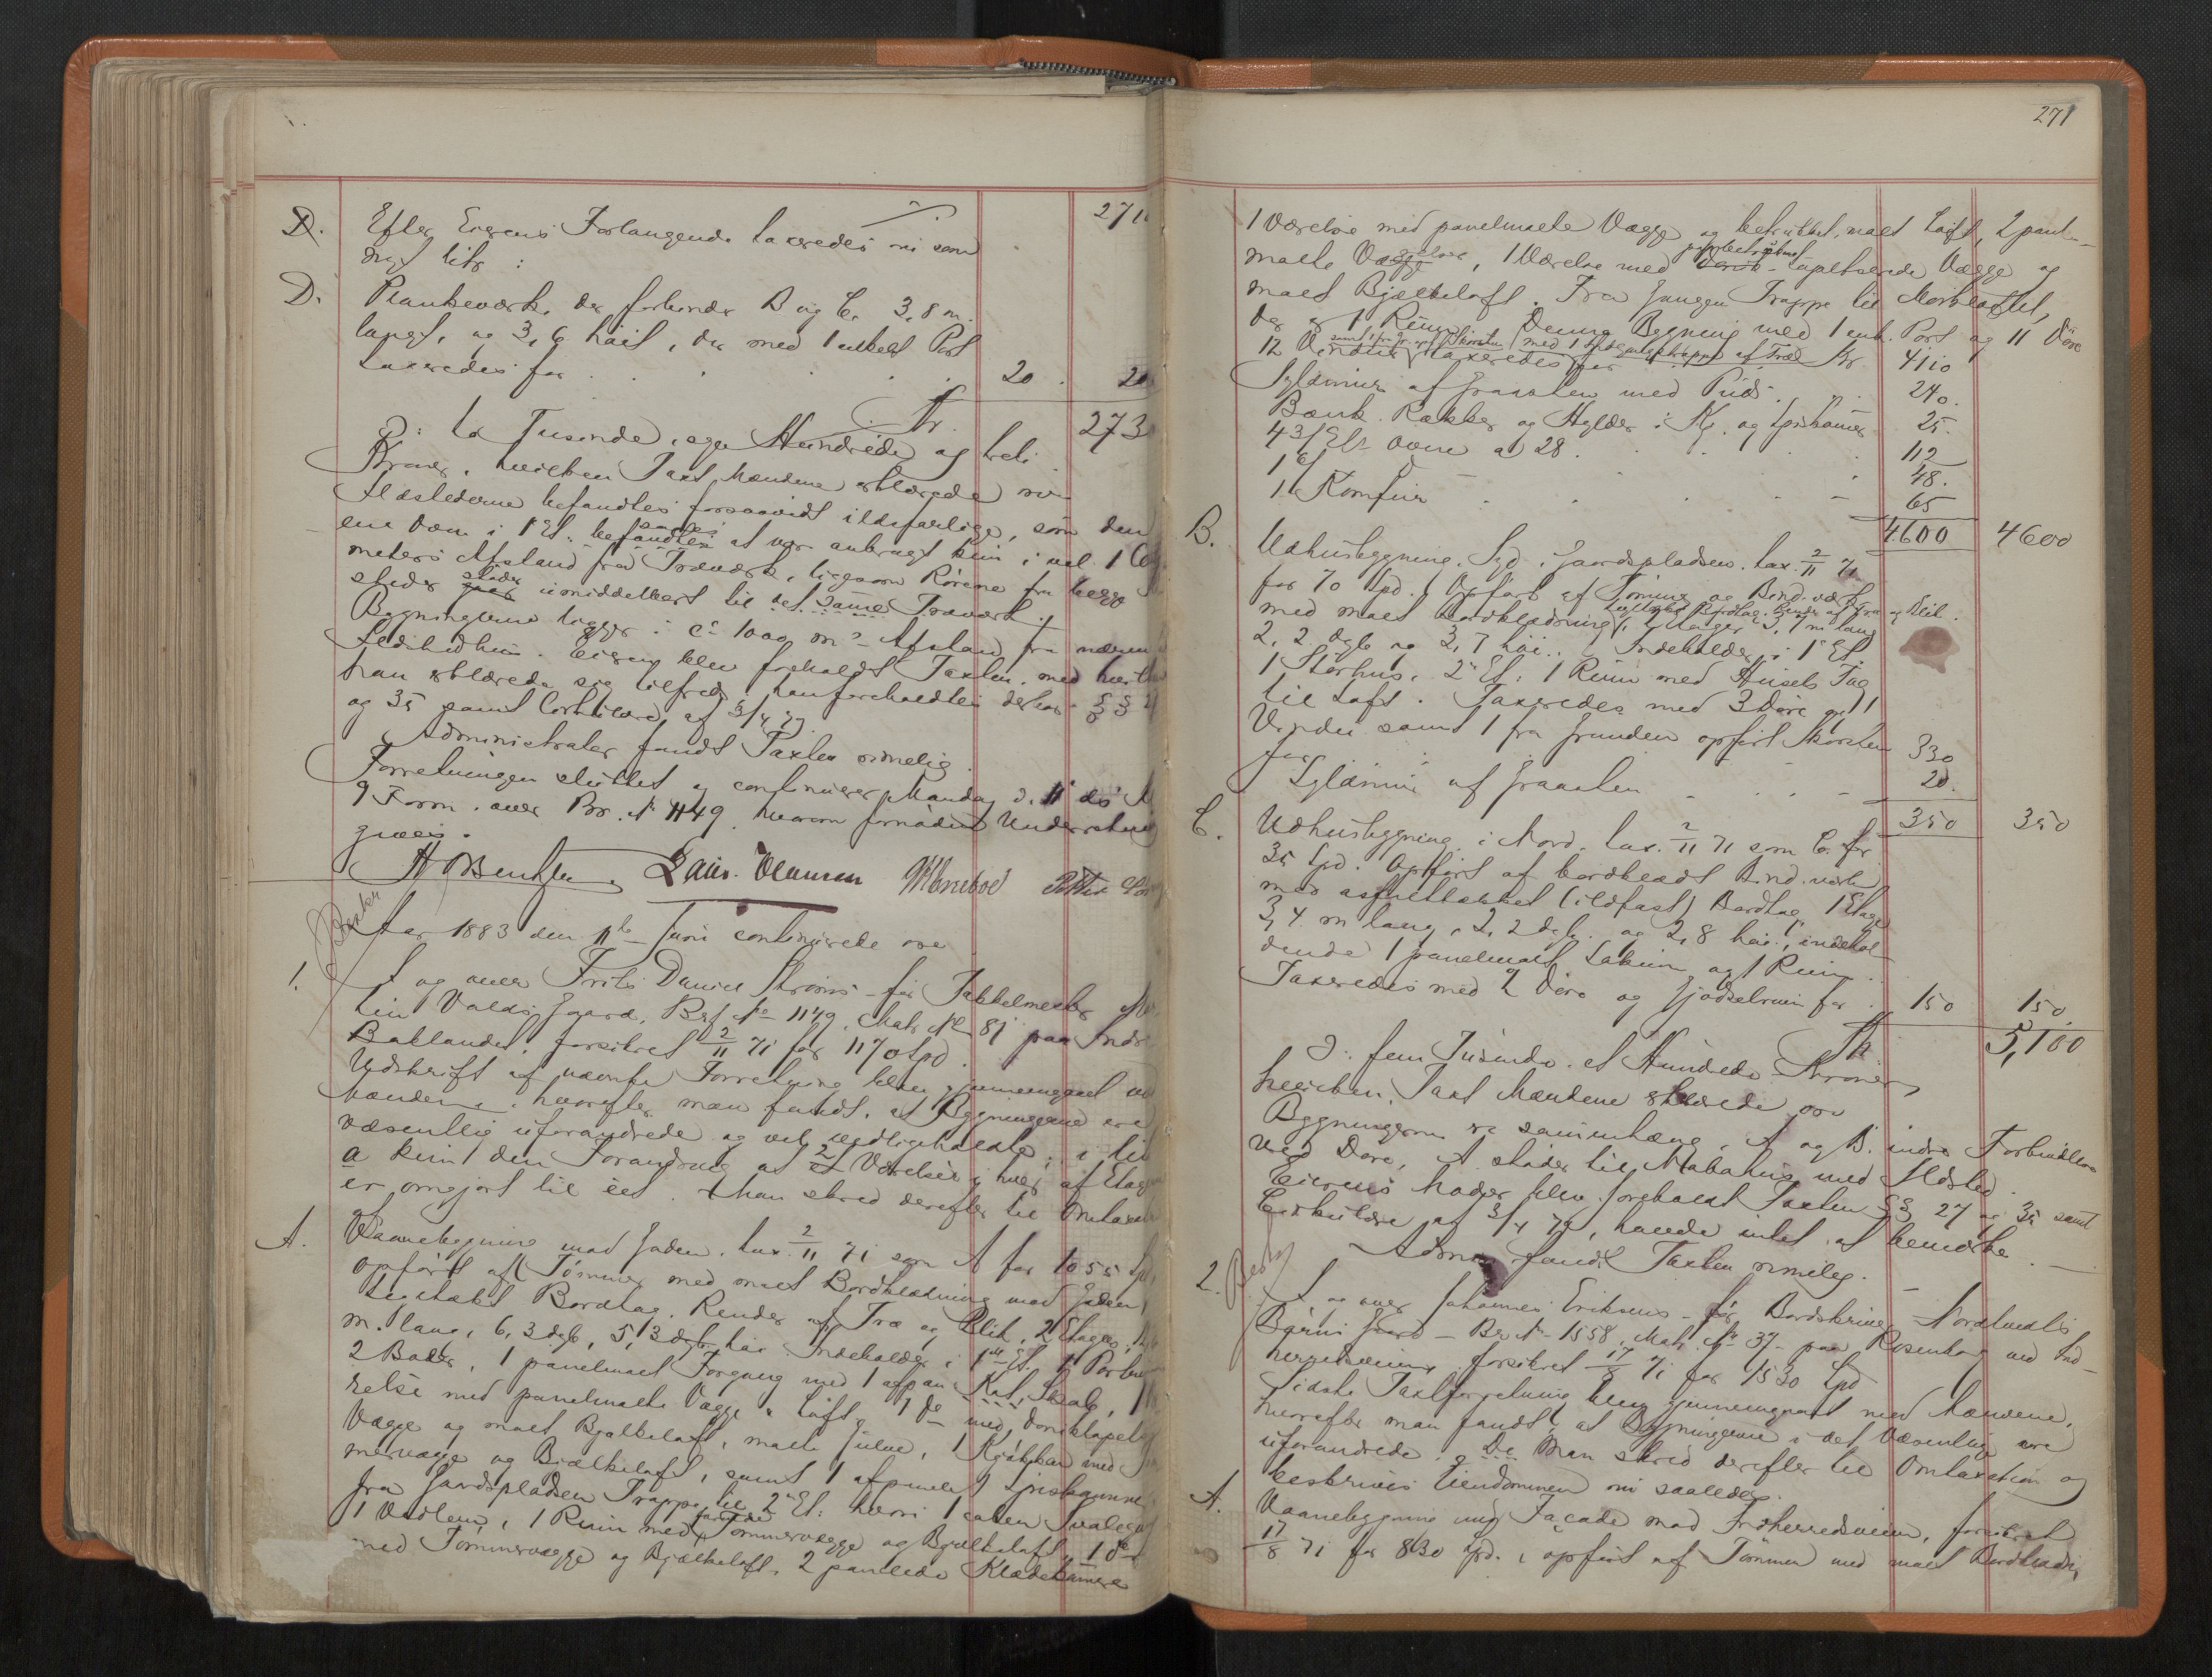 271
D. Efter Eierens Forlangende taxeredes nu som
nyt litr:
D. Plankeværk, der forbinder B og C. 3,8 m.
langt, og 3,6 höit, der med 1 enkelt Port
taxeredes for 20. 20
Kr. 273
to Tusende, syv Hundrede og treti
Kroner, hvilken Taxt Mændene erklærede
Ildstederne befandtes forsaavidt ildsfarlige, som den
ene Ovn i 1ste Et. befandtes at være anbragt kun i
meters Afstand fra Træværk, ligesom Rörene fra begge
steder stöder umiddelbart til det samme Træværk.
Bygningerne ligger i ca 1000 m Afstand fra
Ildstedhus. Eieren blev foreholdt Taxten, med hvilken
han erklærede sig tilfreds, han foreholdtes derhos §§
og 35 samt Cirkulære af 3/4 72.
Administrator fandt Taxten rimelig.
Forretningen sluttet og continuerer Mandag d. 11 ds
9 Form. over Br. № 1149, hvorom fornöden Underretning
gives.
H Bentzen. Laur. Clausen
Aar 1883 den 11te Juni continuerede
1. I og over Frits Daniel Ströms för Takkelmester
tin Valds Gaard, Brf № 1149, Matr № 81 paa Indre
Baklandet, forsikret 2/11 71 for 1170 Spd.
Udskrift af nævnte Forretning blev gjennemgaaet
Mændene, hvorefter man fandt, at Bygningerne ere
væsentlig uforandrede og vel vedligeholdte; i litr
a kun den Forandring at 2 Værelser i hver af Etagerne
er omgjort til eet. Man skred derefter til Omtaxation
A. Vaanebygning mod Gaden, tax. 2/11 71 som A for 1055 Spd,
opfört af Tömmer med malet Bordklædning mod Gaden,
teglhækt Bordtag, Render af Træ og Blik, 2 Etager,
m. lang, 6,3 dyb, 5,3 höi. Indeholder i 1ste Et. 1 Portrum
2 Boder, 1 panelmalet Forgang med 1 afpan. Kat, Skab, 1
relse med panelmalte Vægge & Loft, 1 do med
Vægge og malet Bjælkeloft, malte Gulve, 1 Kjökken med
mervægge og Bjælkeloft, samt 1 afpanelet Spiskammer.
Fra Gaardspladsen Trappe til 2den Et: hvori 1 aaben Svalegang
1 Vedlem, 1 Rum med Tömmervægge og Bjælkeloft, 1 do
med Tömmervægge og Bjælkeloft, 2 panelede Klædekamere
271
1 Værelse med panelmalte Vægge og betrukket, malet Loft, 2 panel-
malte Værelse, 1 Værelse med tapetserede Vægge og
malet Bjælkeloft. Fra Gangen Trappe til Mörkloftet,
der er 1 Rum. Denne Bygning med 1 enk. Port og 11 Döre
12 Vinduer taxeredes for Kr. 4110
Sylemur af Graasten med Puds. 240.
Bænk. Rækker og Hylder i Kj. og Spiskamer 25.
4 3/Et. Ovne a 28. 112
48.
1 Komfur 65
4600 4600
B. Udhusbygning. Syd i Gaardspladsen, tax. 2/11 71
for 70 Spd. Opfört af Tömmer og Bind.værk
med malet Bordklædning, 2 Etager 3,7 m lang
2,2 dyb og 3,7 höi. Indeholder i 1ste Et.
1 Størhus, 2den Et: 1 Rum med Husets Tag
til Loft. Taxeredes med 3 Döre og 1
Vindu samt 1 fra Grunden opfört Skorsten
for 330
Sylemur af Graasten 20.
350 350
C. Udhusbygning i Nord. tax. 2/11 71 som C. for
35 Spd. Opfört af bordklædt Bind.værk
med asfaltlakket (ildfast) Bordtag, 1 Etage
3,4 m lang, 2,2 dyb. og 2,8 höi, indehol-
dende 1 panelmalt Lokum og 1 Rum.
Taxeredes med 2 Döre og Gjödselrum for 150 150.
Kr. 5,100
fem Tusinde, et Hundrede Kroner,
hvilken Taxt Mændene erklærede
Bygningerne ere sammenhæng. A og B. indre Forbindelse
ved Døre, A støder til Nabohus med Ildsted.
Eierens Moder blev foreholdt Taxten §§ 27 og 35 samt
Cirkulære af 3/4 72, havde intet at bemærke.
Admin. fandt Taxten rimelig.
2. I og over Johannes Eriksens för Bordskriver Nordvedts
Börns Gaard - Br № 1558, Matr. № 37 paa Rosenborg ved Ind-
herredsveien, forsikret 17/8 71 for 1530 Spd
Sidste Taxtforretning blev gjennemgaaet med Mændene,
hvorefter man fandt, at Bygningerne i det Væsentlige ere
uforandrede. Man skred derefter til Omtaxation og
beskrives Eiendommen nu saaledes.
A. Vaanebygning med Façade mod Indherredsveien, forsikret
17/8 71 for 830 Spd., opfört af Tömmer med malet Bordklædn.